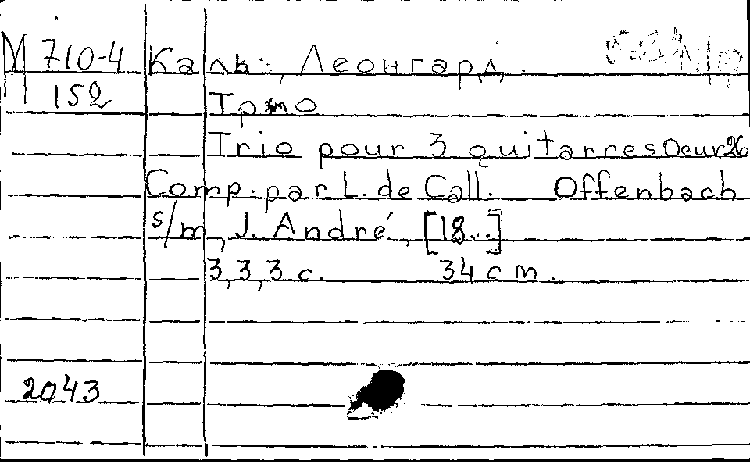 М 710-4 Калль, Леонгард.
152 Трио
Trio pour 3 guitarres Oeur 26
Comp. par L. de Call. Offenbach
s/m, J. André, [18..]
3,3,3 с. 34 cm.
2043